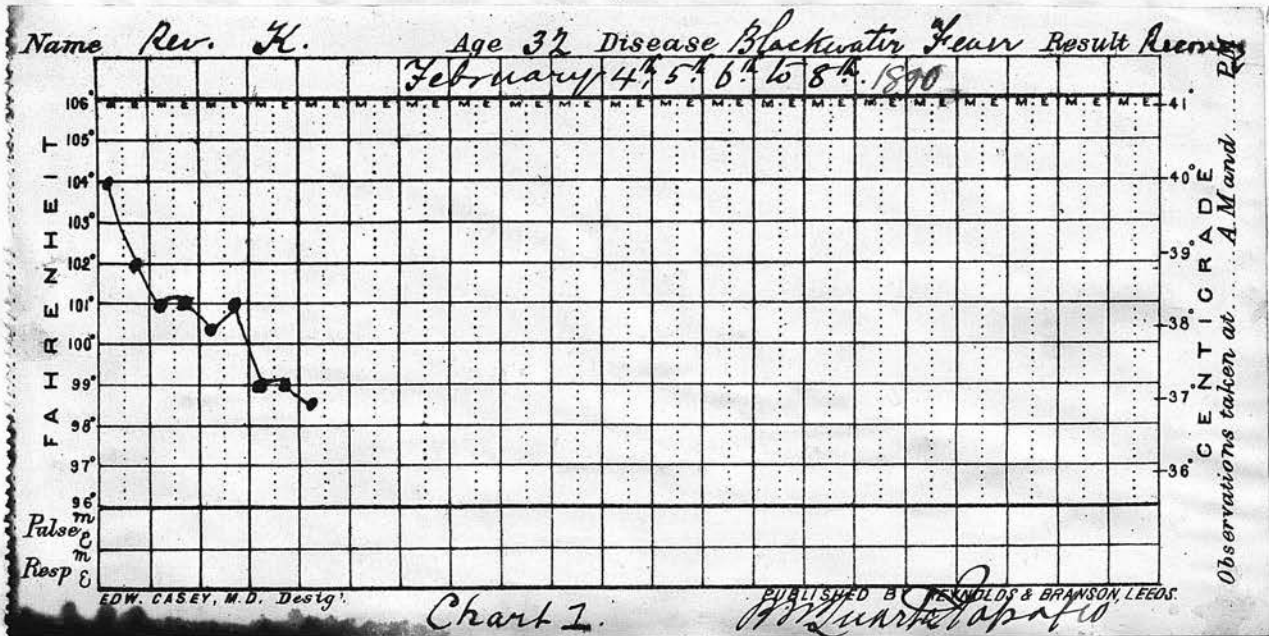 Name Rev. K. Age 32 Disease Blackwater Fever Result Recovery
February 4th, 5th 6th to 8th. 1890
M. E. M. E. M. E. M. E. M. E. M. E. M. E. M. E. M. E. M. E. M. E. M. E. M. E. M. E. M. E. M. E. M. E. M. E. M. E. M. E. M. E.
FAHRENHEIT
106°
105°
104°
103°
102°
101°
100°
99°
98°
97°
96°
41°
40°
39°
38°
37°
36°
CENTIGRADE
Observations taken at A.M and P.M
Pulse m E
Resp m E
EDW. CASEY, M.D. Desig^r.
PUBLISHED BY REYNOLDS & BRANSON, LEEDS.
Chart 1. Quartey Papafio